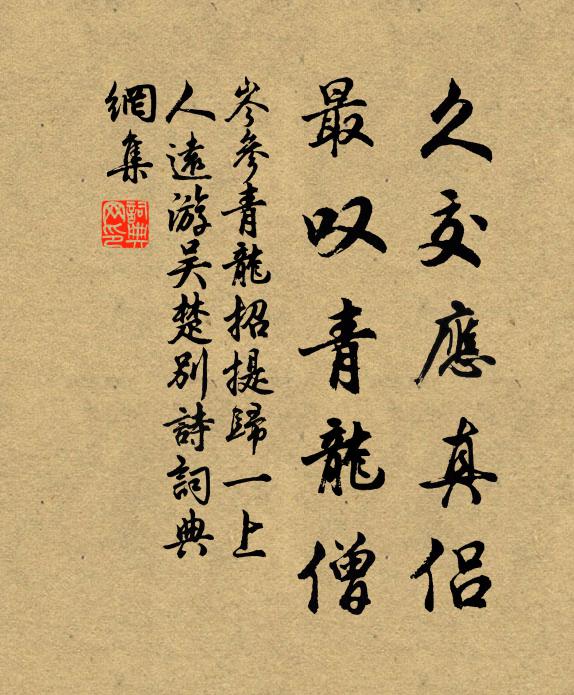 久交應真侶
最叹青龍僧
岑參青龍招提歸一上
人遠游吴楚別詩詞典
網集
詞典
网印